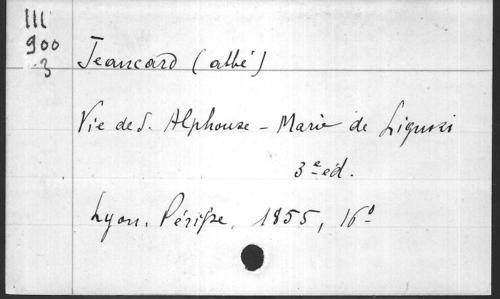 III
900
3
Jeancard (abbé)
Vie de S. Alphonse-Marie de Liguori
3e éd.
Lyon, Périsse, 1855, 16°